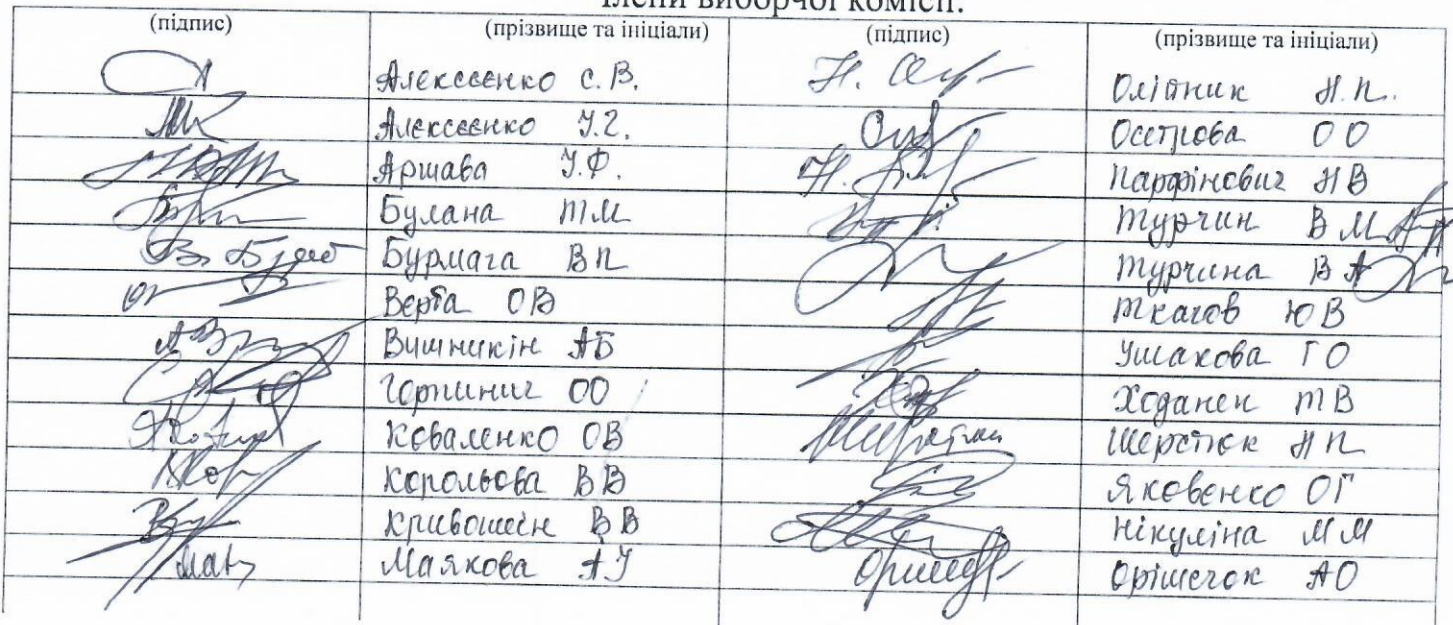 Члени виборчої комісії:
(підпис) (прізвище та ініціали) (підпис) (прізвище та ініціали)
Алексеєнко С. В. Олійник Н. П.
Алексеєнко У. 2. Осетрова О О
Аршава У. Ф. Парфінович Н В
Булана Т М Турчин В М
Бурмага В П Турчина В А
Верба О В Ткачов Ю В
Вишникін А Б Ушакова Г О
Горпинич О О Ходанен Т В
Коваленко О В Шерстюк Н П
Корольова В В Яковенко О Г
Кривошеїн В В Нікуліна М М
Маякова А У Орішечок А О